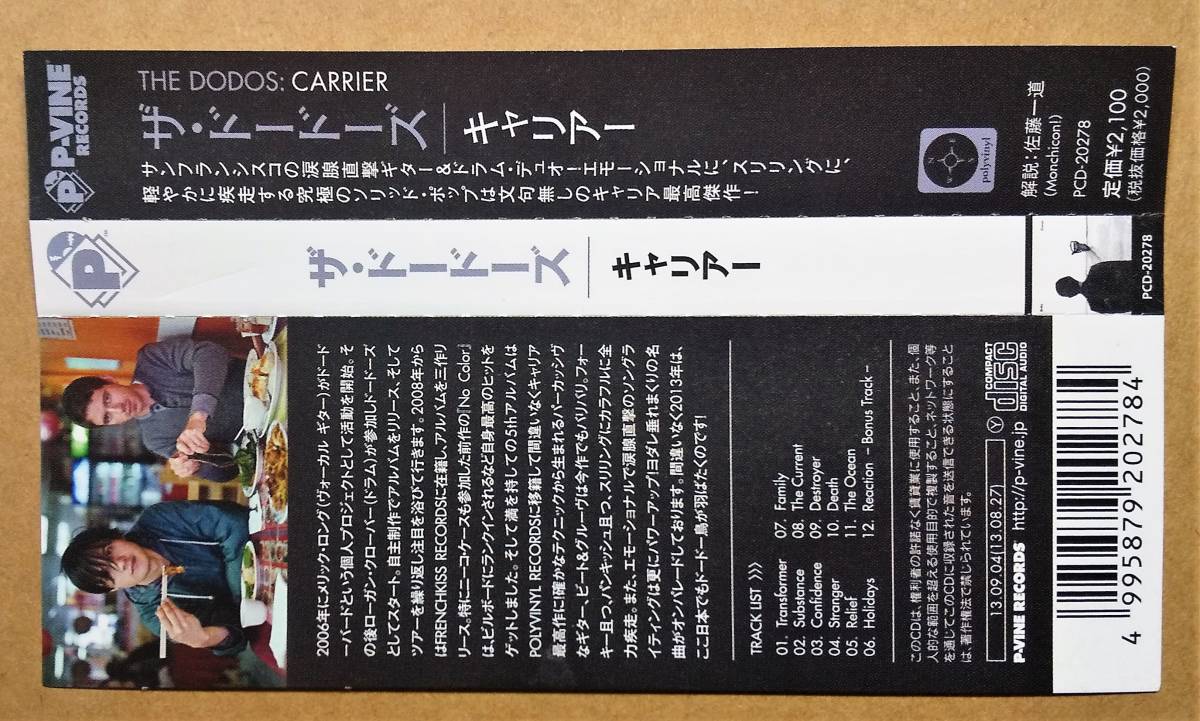 P-VINE
RECORDS
THE DODOS: CARRIER
ザ・ドードーズ
キャリアー
サンフランシスコの涙腺直撃ギター&ドラム・デュオーエモーショナルに、スリリングに、
軽やかに疾走する究極のソリッド・ポップは文句無しのキャリア最高傑作!
polyvinyl
解説：佐藤一道
(Monchicon!)
PCD-20278
定価¥2,100
(税抜価格¥2,000)
P
TM
ザ・ドードーズ
キャリアー
PCD-20278
2006年にメリック・ロング(ヴォーカル ギター)がドード
ーバードという個人プロジェクトとして活動を開始。そ
の後ローガン・クローバー(ドラム)が参加しドードーズ
としてスタート。自主制作でアルバムをリリース、そして
ツアーを繰り返し注目を浴びて行きます。2008年から
はFRENCHKISS RECORDSに在籍し、アルバムを三作リ
リース。特にニーコ・ケースも参加した前作の『No Color』
は、ビルボードにランクインされるなど自身最高のヒットを
ゲットしました。そして満を持しての5thアルバムは
POLYVINYL RECORDSに移籍して間違いなくキャリア
最高作に!確かなテクニックから生まれるパーカッシヴ
なギター、ビート&グルーヴは今作でもバリバリ。フォー
キー且つ、パンキッシュ且つ、スリリングにカラフルに全
力疾走。また、エモーショナルで涙腺直撃のソングラ
イティングは更にパワーアップ!ヨダレ垂れまくりの名
曲がオンパレードしております。間違いなく2013年は、
ここ日本でもドードー鳥が羽ばたくのです!
TRACK LIST >>>
01. Transformer
02. Substance
03. Confidence
04. Stranger
05. Relief
06. Holidays
07. Family
08. The Current
09. Destroyer
10. Death
11. The Ocean
12. Reaction – Bonus Track –
このCDは、権利者の許諾なく賃貸業に使用すること、また、個
人的な範囲を超える使用目的で複製すること、ネットワーク等
を通じてこのCDに収録された音を送信できる状態にすること
は、著作権法で禁じられています。
13.09.04(13.08.27) Y
P-VINE RECORDS http://p-vine.jp
COMPACT
disc
DIGITAL AUDIO
4 995879 202784